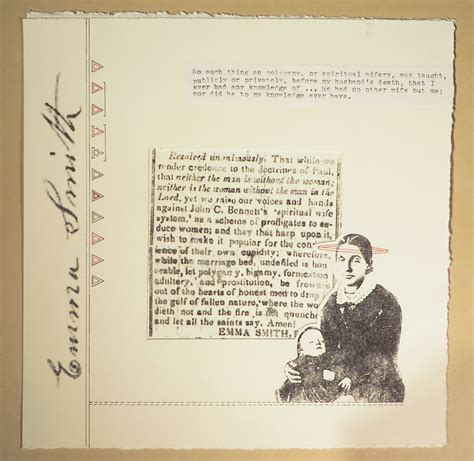 Emma Smith
No such thing as polygamy, or spiritual wifery, was taught,
publicly or privately, before my husband's death, that I
ever had any knowledge of ... He had no other wife but me;
nor did he to my knowledge ever have.
Resolved unanimously: That while we
render credence to the doctrines of Paul,
that neither the man is without the woman;
neither is the woman without the man in the
Lord, yet we raise our voices and hands
against John C. Bennett's 'spiritual wife
system,' as a scheme of profligates to se-
duce women; and they that harp upon it,
wish to make it popular for the con
ience of their own cupidity; wherefore,
while the marriage bed, undefiled is hon
orable, let polygamy, bigamy, fornication
adultery, and prostitution, be frowned
out of the hearts of honest men to drop
the gulf of fallen nature, 'where the wo
dieth not and the fire is not quench
and let all the saints say, Amen!
EMMA SMITH,